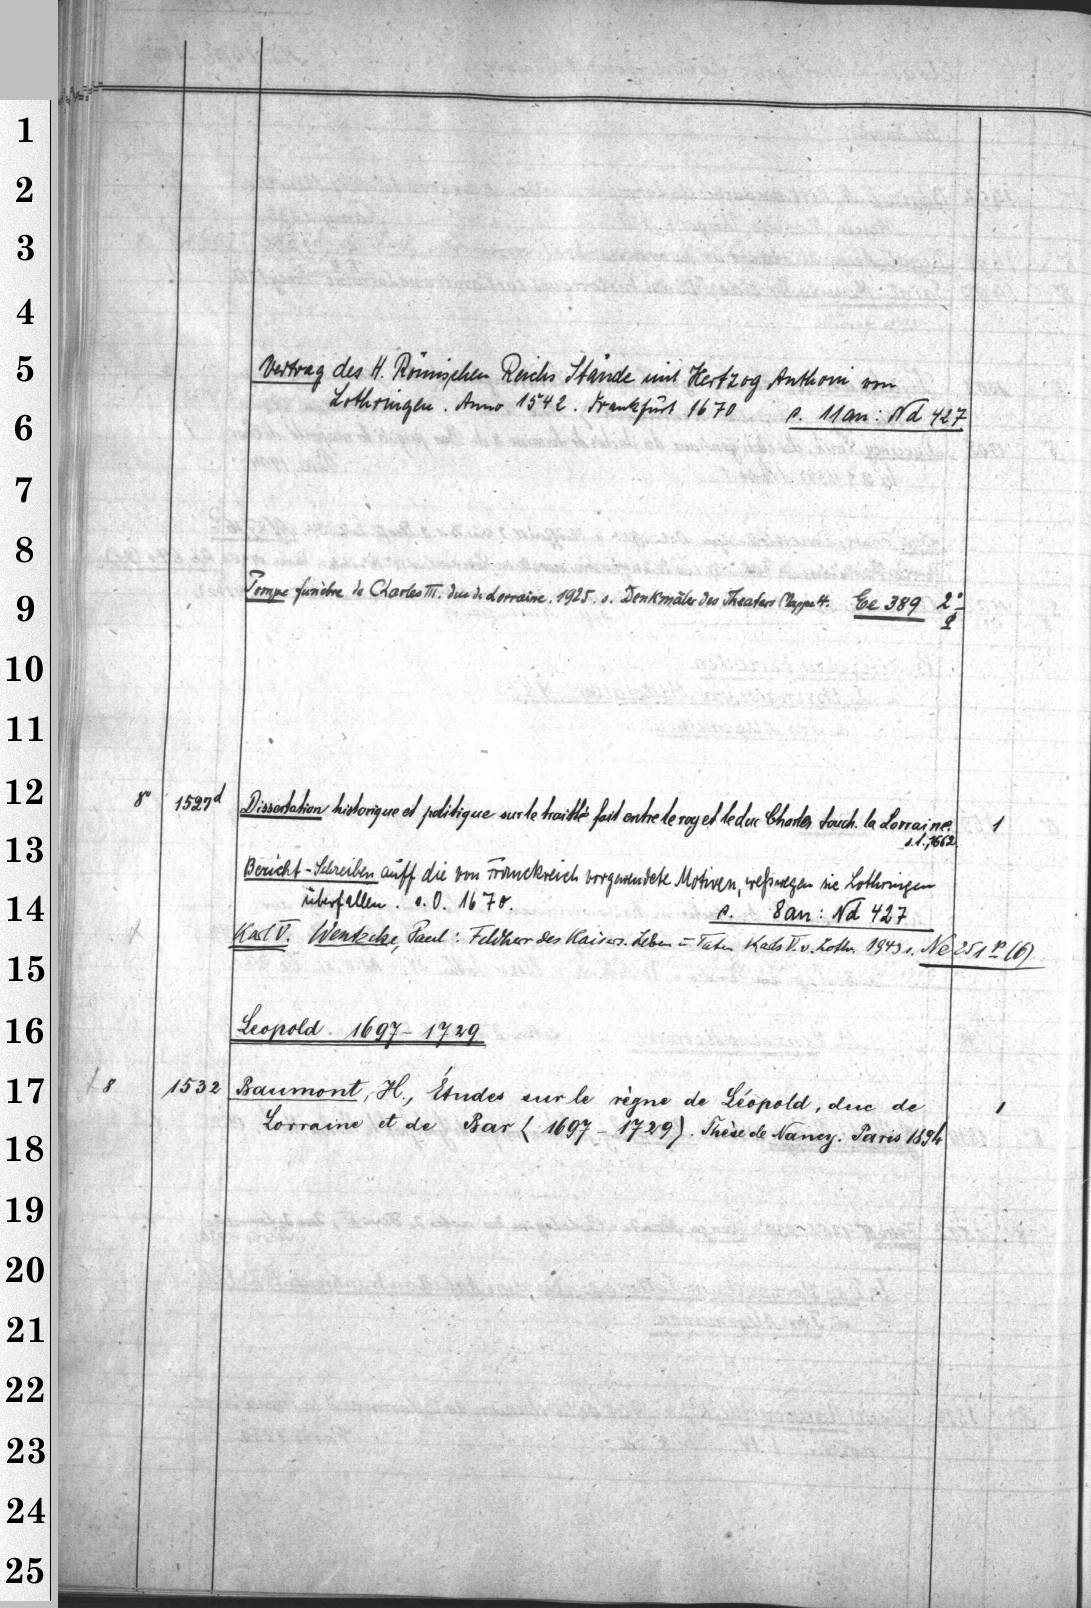 1
2
3
4
5 Vertrag des H. Römischen Reichs Stände mit Hertzog Anthoni von
6 Lothringen. Anno 1542. Frankfurt 1670 s. 11 an: Nd 427
7
8
9 Pompe funèbre de Charles III. duc de Lorraine. 1925. s. Denkmäler des Theaters Mappe 4. Ee 389 2°
10
11
12 8° 1527d Dissertation historique et politique sur le traitté fait entre le roy et le duc Charles touch. la Lorraine. 1
s.l., 1662
13 Bericht-Schreiben auff die von Franckreich vorgewendete Motiven, weßwegen sie Lothringen
14 überfallen. s.O. 1670. s. 8 an: Nd 427
Karl V. Wentzcke, Paul: Feldherr des Kaisers. Leben u Taten Karls V. v. Lothr. 1943 s. Ne 251 p (6)
15
16 Leopold. 1697-1729
17 8 1532 Baumont, H., Études sur le règne de Léopold, duc de 1
18 Lorraine et de Bar (1697-1729). Thèse de Nancy. Paris 1894
19
20
21
22
23
24
25